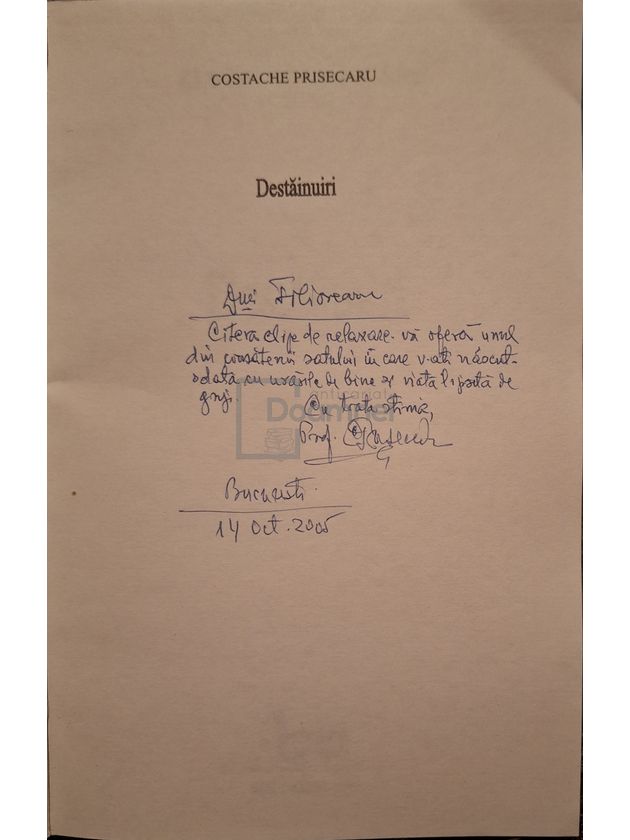 COSTACHE PRISECARU
Destăinuiri
Citeva clipe de relaxare vă oferă unul
din consătenii satului în care v-ati născut
odată cu urările de bine și viata lipsită de
griji.
Cu toată stima,
Prof.
București
14 Oct. 2005
Anticariatul
Doamnei